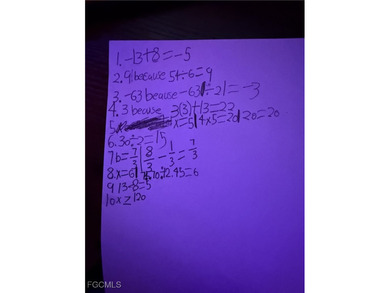 1. -13+8=-5
2. 9 | because 54÷6=9
3. -63 because -63 | ÷-21=-3
4. 3 because 3(3)+13=22
5. x=5 | 4x5=20 | 20=20
6. 30÷2=15
7 b=7/3 | 8/3 - 1/3 = 7/3
8. x=6 | ÷2.45=6
9 13-8=5
10 x≥120
FGCMLS